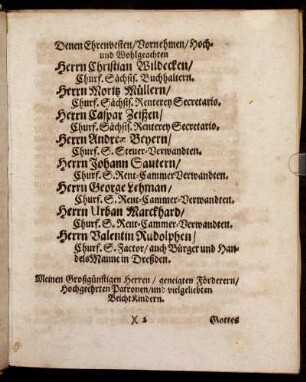 Denen Ehrenvesten/Vornehmen/Hoch-
und Wohlgeachten
Herrn Christian Wildecken/
Churf. Sächsis. Buchhaltern.
Herrn Moritz Müllern/
Churf. Sächsis. Renterey Secretario.
Herrn Caspar Zeißen/
Churf. Sächsis. Renterey Secretario.
Herrn Andreæ Beyern/
Churf. S. Steuer-Verwandten.
Herrn Johann Sautern/
Churf. S. Rent-CammerVerwandten.
Herrn George Lehman/
Churf. S. Rent-Cammer-Verwandten.
Herrn Urban Marckhard/
Churf. S. Rent-Cammer-Verwandten.
Herrn Valentin Rudolphen/
Churf. S. Factor/auch Bürger und Han-
delsManne in Dreßden.
Meinen Großgünstigen Herren/ geneigten Förderern/
Hochgeehrten Patronen/und vielgeliebten
Beicht Kindern.
X 2 Gottes